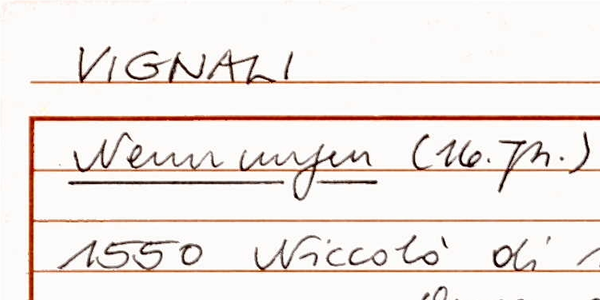 VIGNALI
Nennungen (16. Jh.)
1550 Niccolò di